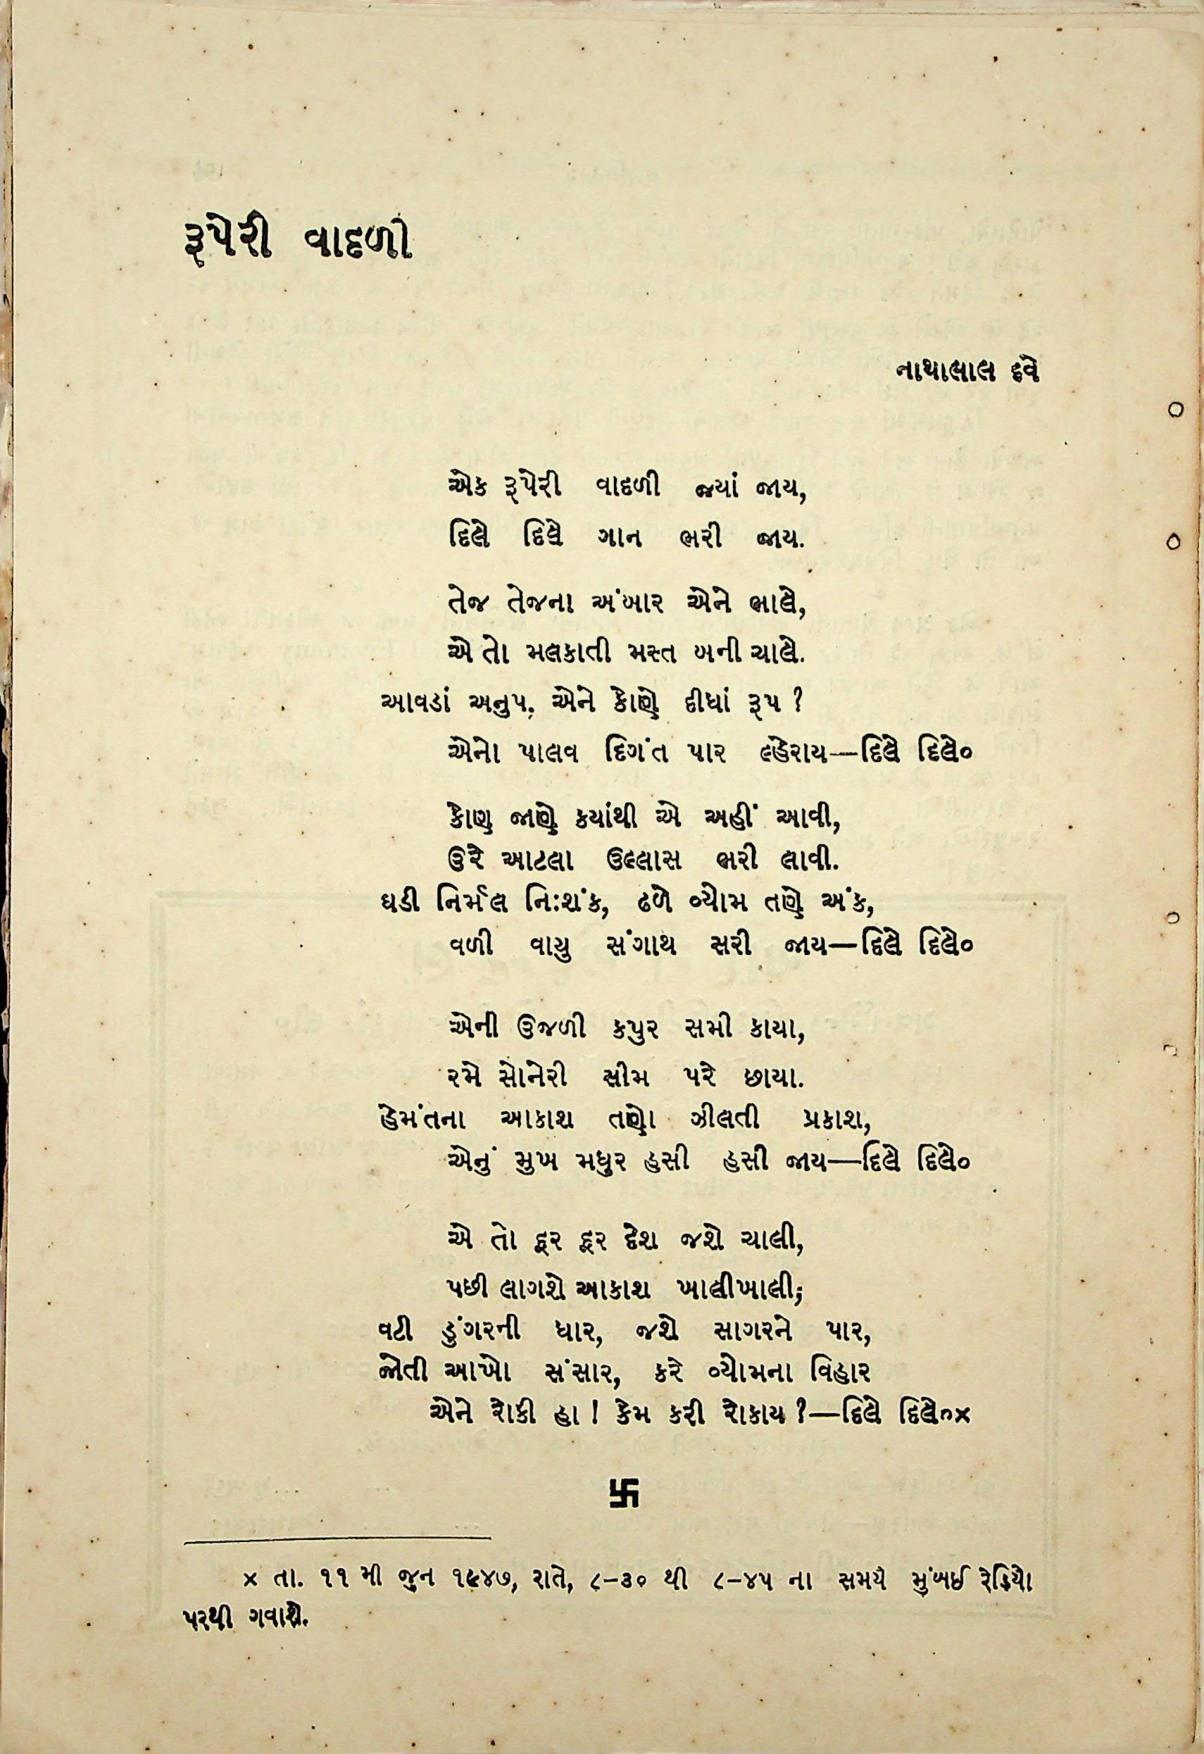 રૂપેરી વાદળી
નાથાલાલ દવે
એક રૂપેરી વાદળી જ્યાં જાય,
દિલે દિલે ગાન ભરી જાય.
તેજ તેજના અંબાર એને ભાલે,
એ તો મલકાતી મસ્ત બની ચાલે.
આવડાં અનુપ, એને કોણે દીધાં રૂપ ?
એનો પાલવ દિગંત પાર લ્હેરાય—દિલે દિલે૦
કોણ જાણે કયાંથી એ અહીં આવી,
ઉરે આટલા ઉલ્લાસ ભરી લાવી.
ઘડી નિર્મલ નિઃશંક, ઢળે વ્યોમ તણે અંક,
વળી વાયુ સંગાથ સરી જાય—દિલે દિલે૦
એની ઉજળી કપુર સમી કાયા,
રમે સોનેરી સીમ પરે છાયા.
હેમંતના આકાશ તણો ઝીલતી પ્રકાશ,
એનું મુખ મધુર હસી હસી જાય—દિલે દિલે૦
એ તો દૂર દૂર દેશ જશે ચાલી,
પછી લાગશે આકાશ ખાલીખાલી;
વટી ડુંગરની ધાર, જશે સાગરને પાર,
જોતી આખો સંસાર, કરે વ્યોમના વિહાર
એને રોકી હા ! કેમ કરી રોકાય ?—દિલે દિલે૦×
卐
× તા. ૧૧ મી જુન ૧૯૪૭, રાતે, ૮-૩૦ થી ૮-૪૫ ના સમયે મુંબઈ રેડિયો
પરથી ગવાશે.